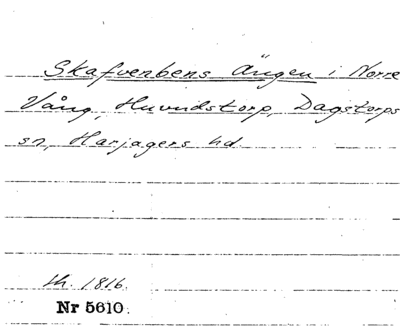 Skafvenbens Ängen i Norre
Vång, Huvudstorp, Dagstorps
sn, Harjagers hd.
th. 1816.
Nr 5610.